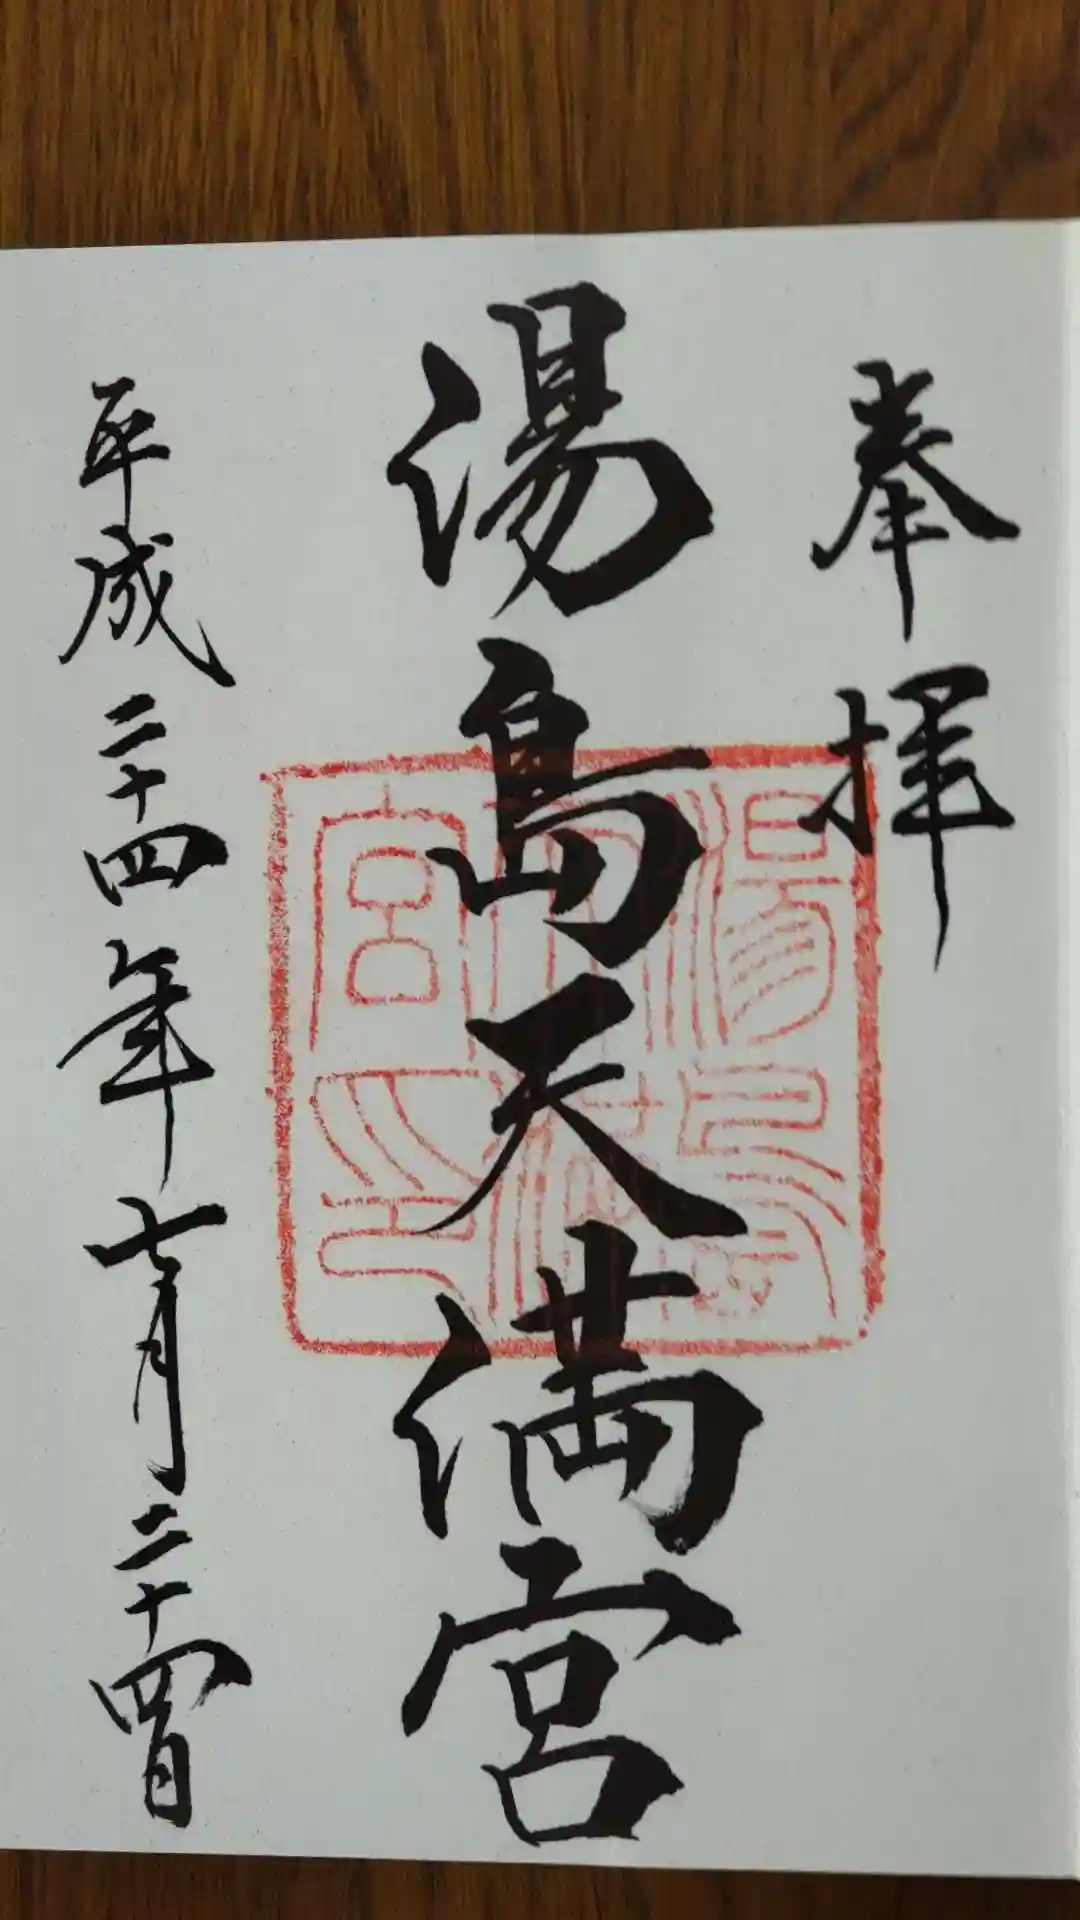 奉拝
湯島天満宮
湯島天満宮印
平成二十四年七月二十四日